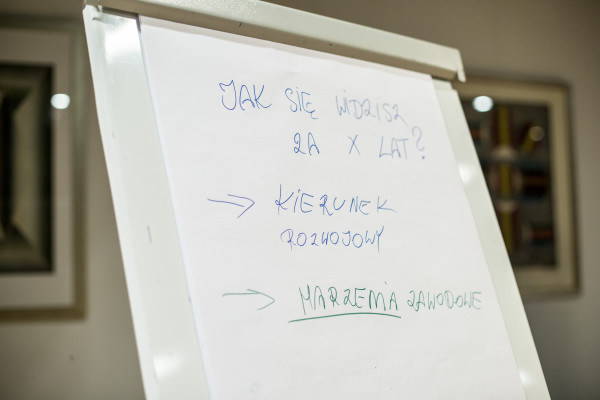 JAK SIĘ WIDZISZ
ZA X LAT?
→ KIERUNEK
ROZWOJOWY
→ MARZENIA ZAWODOWE